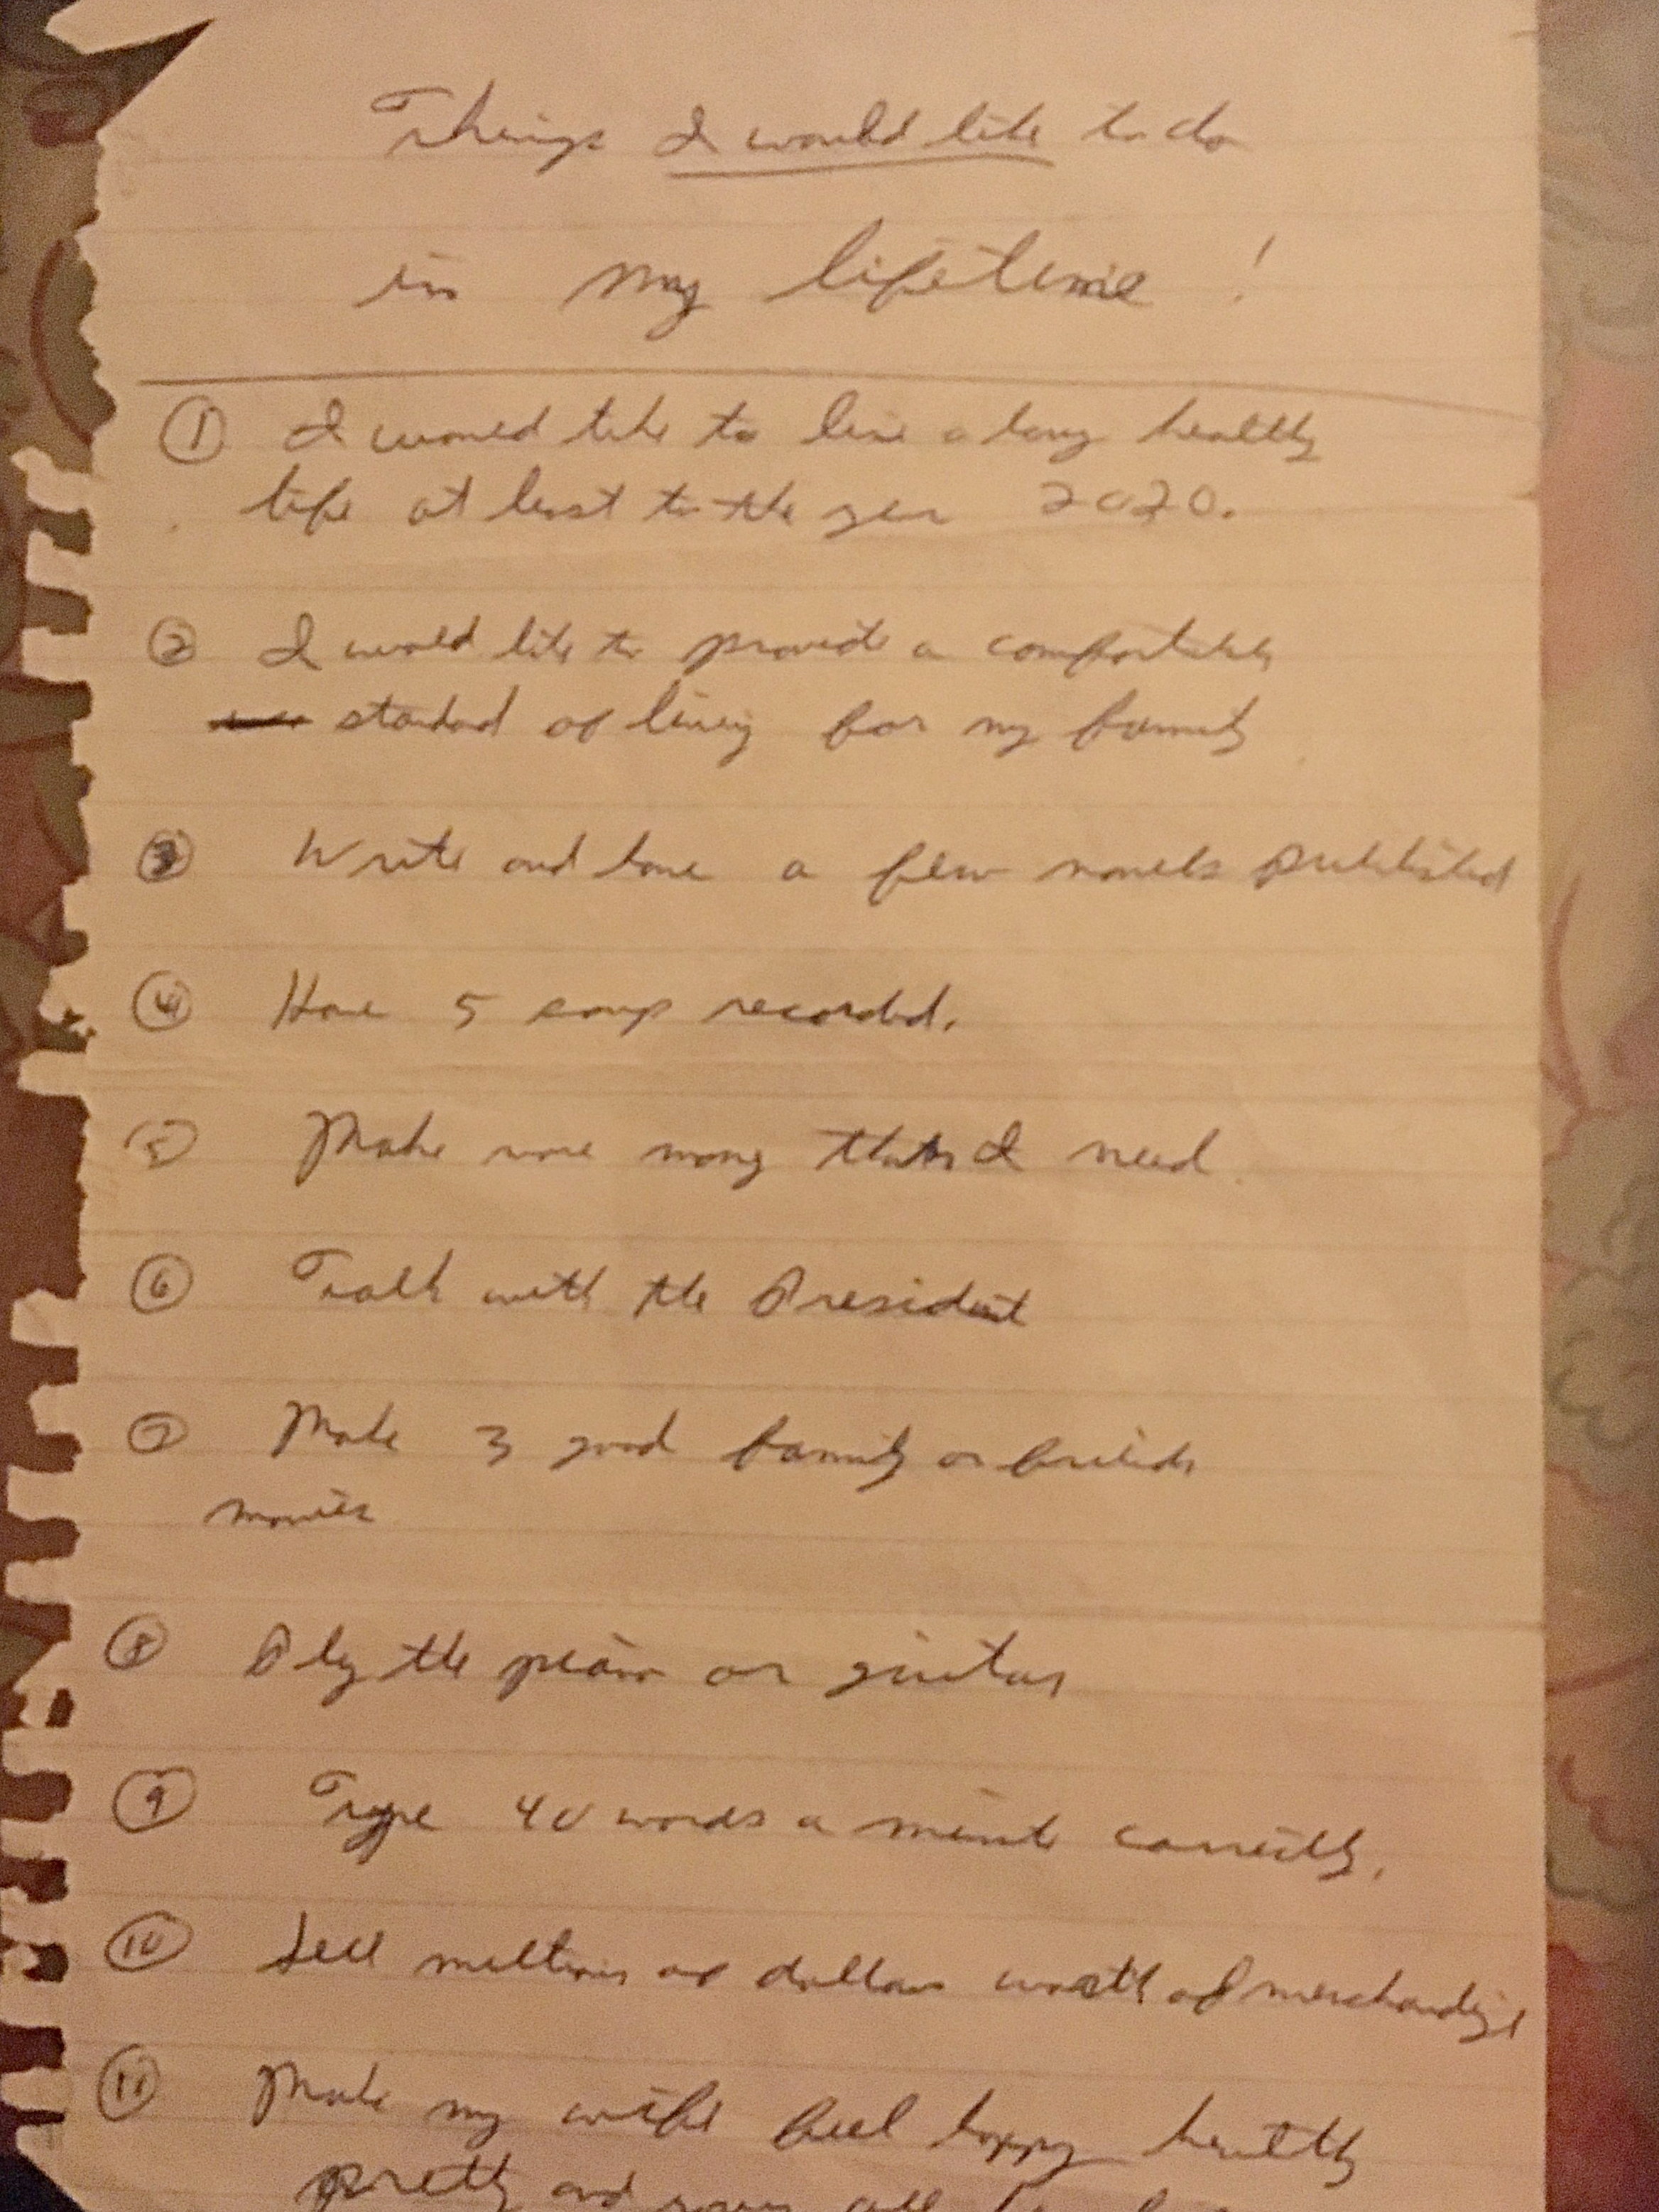 Things I would like to do
in my lifetime!
① I would like to live a long healthy
life at least to the year 2020.
② I would like to provide a comfortable
standard of living for my family
③ Write and have a few novels published
④ Have 5 songs recorded.
⑤ Make more money than I need.
⑥ Talk with the President
⑦ Make 3 good family or
movies
⑧ Play the piano or guitar
⑨ Type 40 words a minute correctly.
⑩ Sell millions of dollars worth of merchandise
⑪ Make my wife feel happy healthy
pretty and